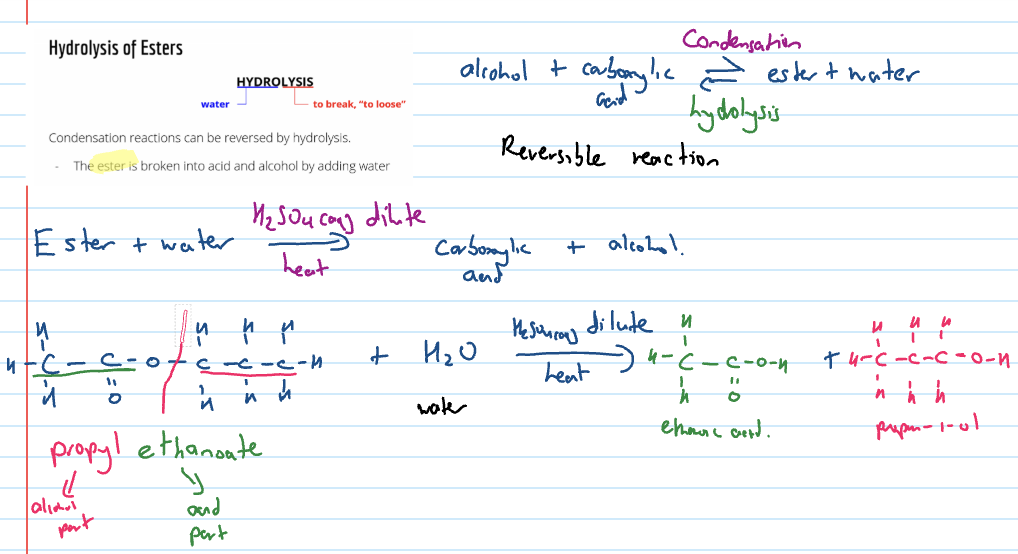 Hydrolysis of Esters
HYDROLYSIS
water
to break, "to loose"
Condensation reactions can be reversed by hydrolysis.
- The ester is broken into acid and alcohol by adding water
Condensation
alcohol + carboxylic acid ⇌ ester + water
hydrolysis
Reversible reaction
H2SO4 (aq) dilute
Ester + water → carboxylic acid + alcohol.
heat
H H H H
H - C - C - O - C - C - C - H + H2O
H O H H H
water
H2SO4 (aq) dilute
heat
H
H - C - C - O - H
H O
ethanoic acid.
+
H H H
H - C - C - C - O - H
H H H
propan-1-ol
propyl ethanoate
alcohol part
acid part